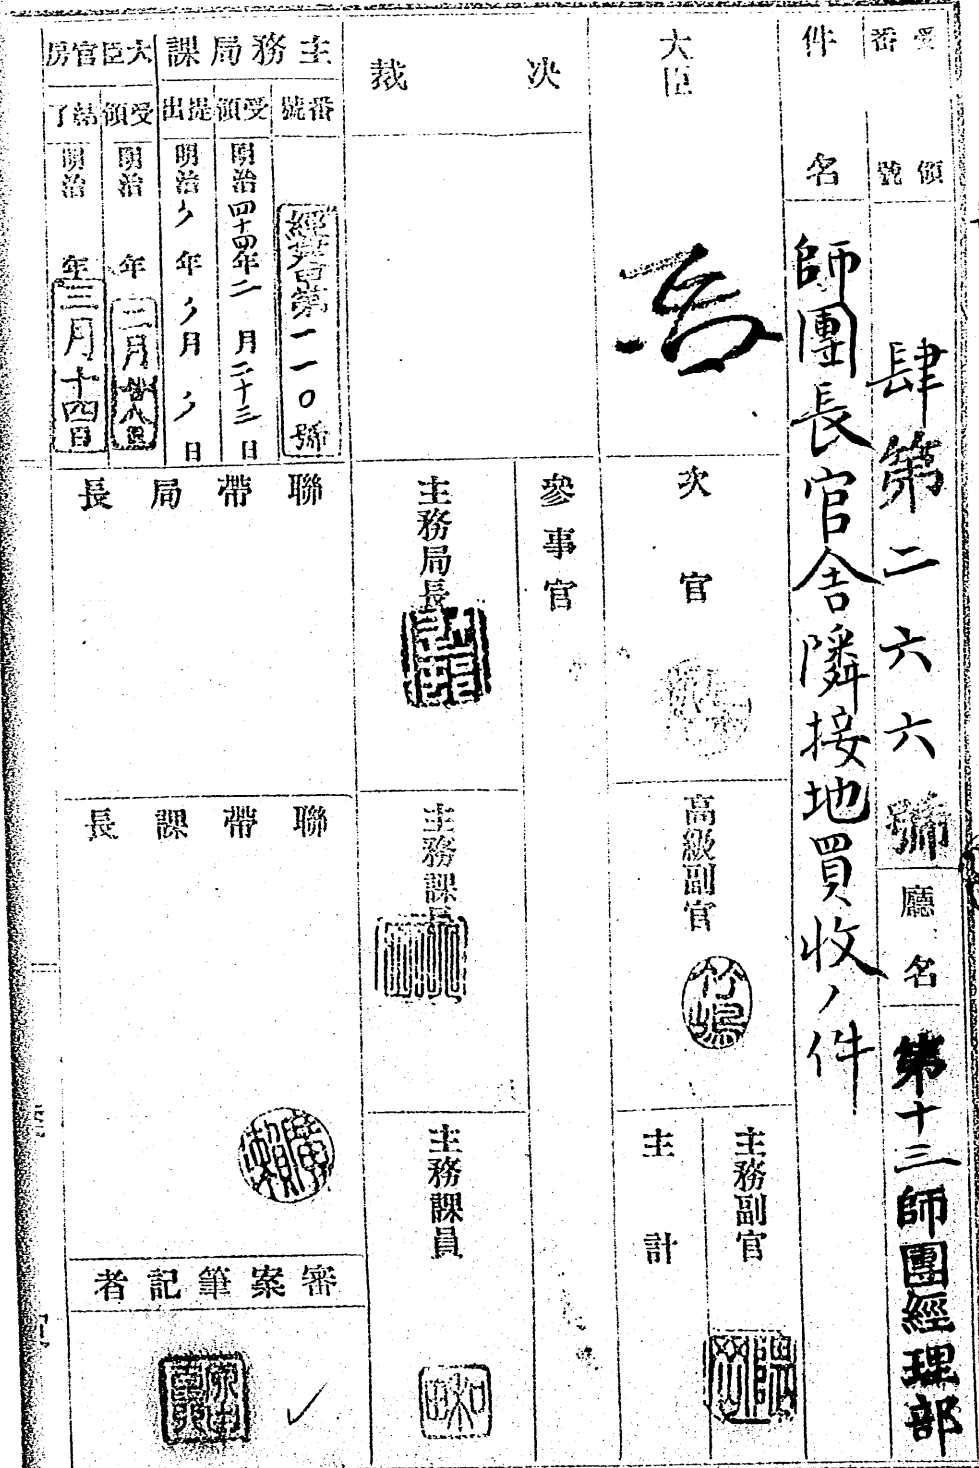 受領番號
肆第二六六號
廳名
第十三師團經理部
件名
師團長官舎隣接地買收ノ件
大臣
次官
高級副官
竹嶋
主務副官
主計
決裁
參事官
主務局長
主務課長
主務課員
和田
主務局課
番號
經營第一一〇號
受領
明治四十四年二月二十三日
提出
明治〃年〃月〃日
大臣官房
受領
明治 年二月廿八日
結了
明治 年三月十四日
聯帶局長
聯帶課長
廣瀬
審案筆記者